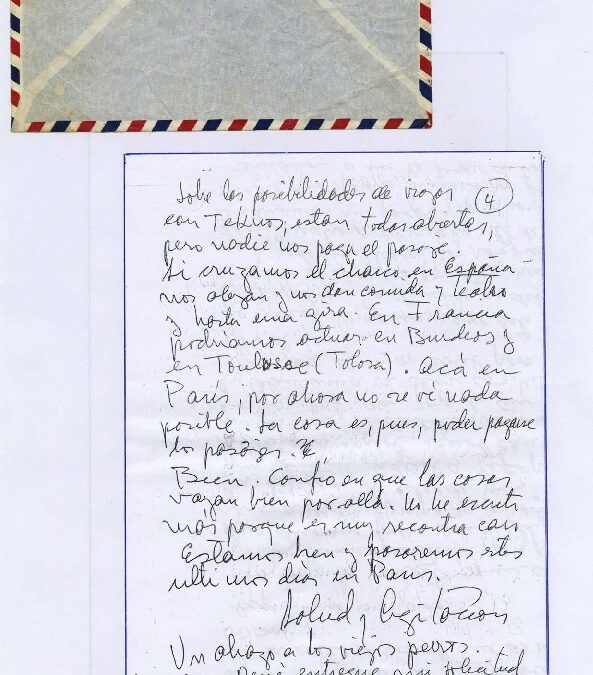 Sobre las posibilidades de viajar
4
con Teknos, estan todas abiertas,
pero nadie nos paga el pasaje.
Si cruzamos el charco en España
nos alojan y nos dan comida y teatro
y hasta una gira. En Francia
podríamos actuar en Burdeos y
en Toulouse (Tolosa). Acá en
París, por ahora no se ve nada
posible. La cosa es, pues, poder pagarse
los pasajes.
Bien. Confío en que las cosas
vayan bien por allá. No he escrito
más porque es muy recontra caro
Estamos bien y pasaremos estos
ultimos días en Paris.
Salud y
Un abrazo a los viejos perros.
entregue mi solicitud